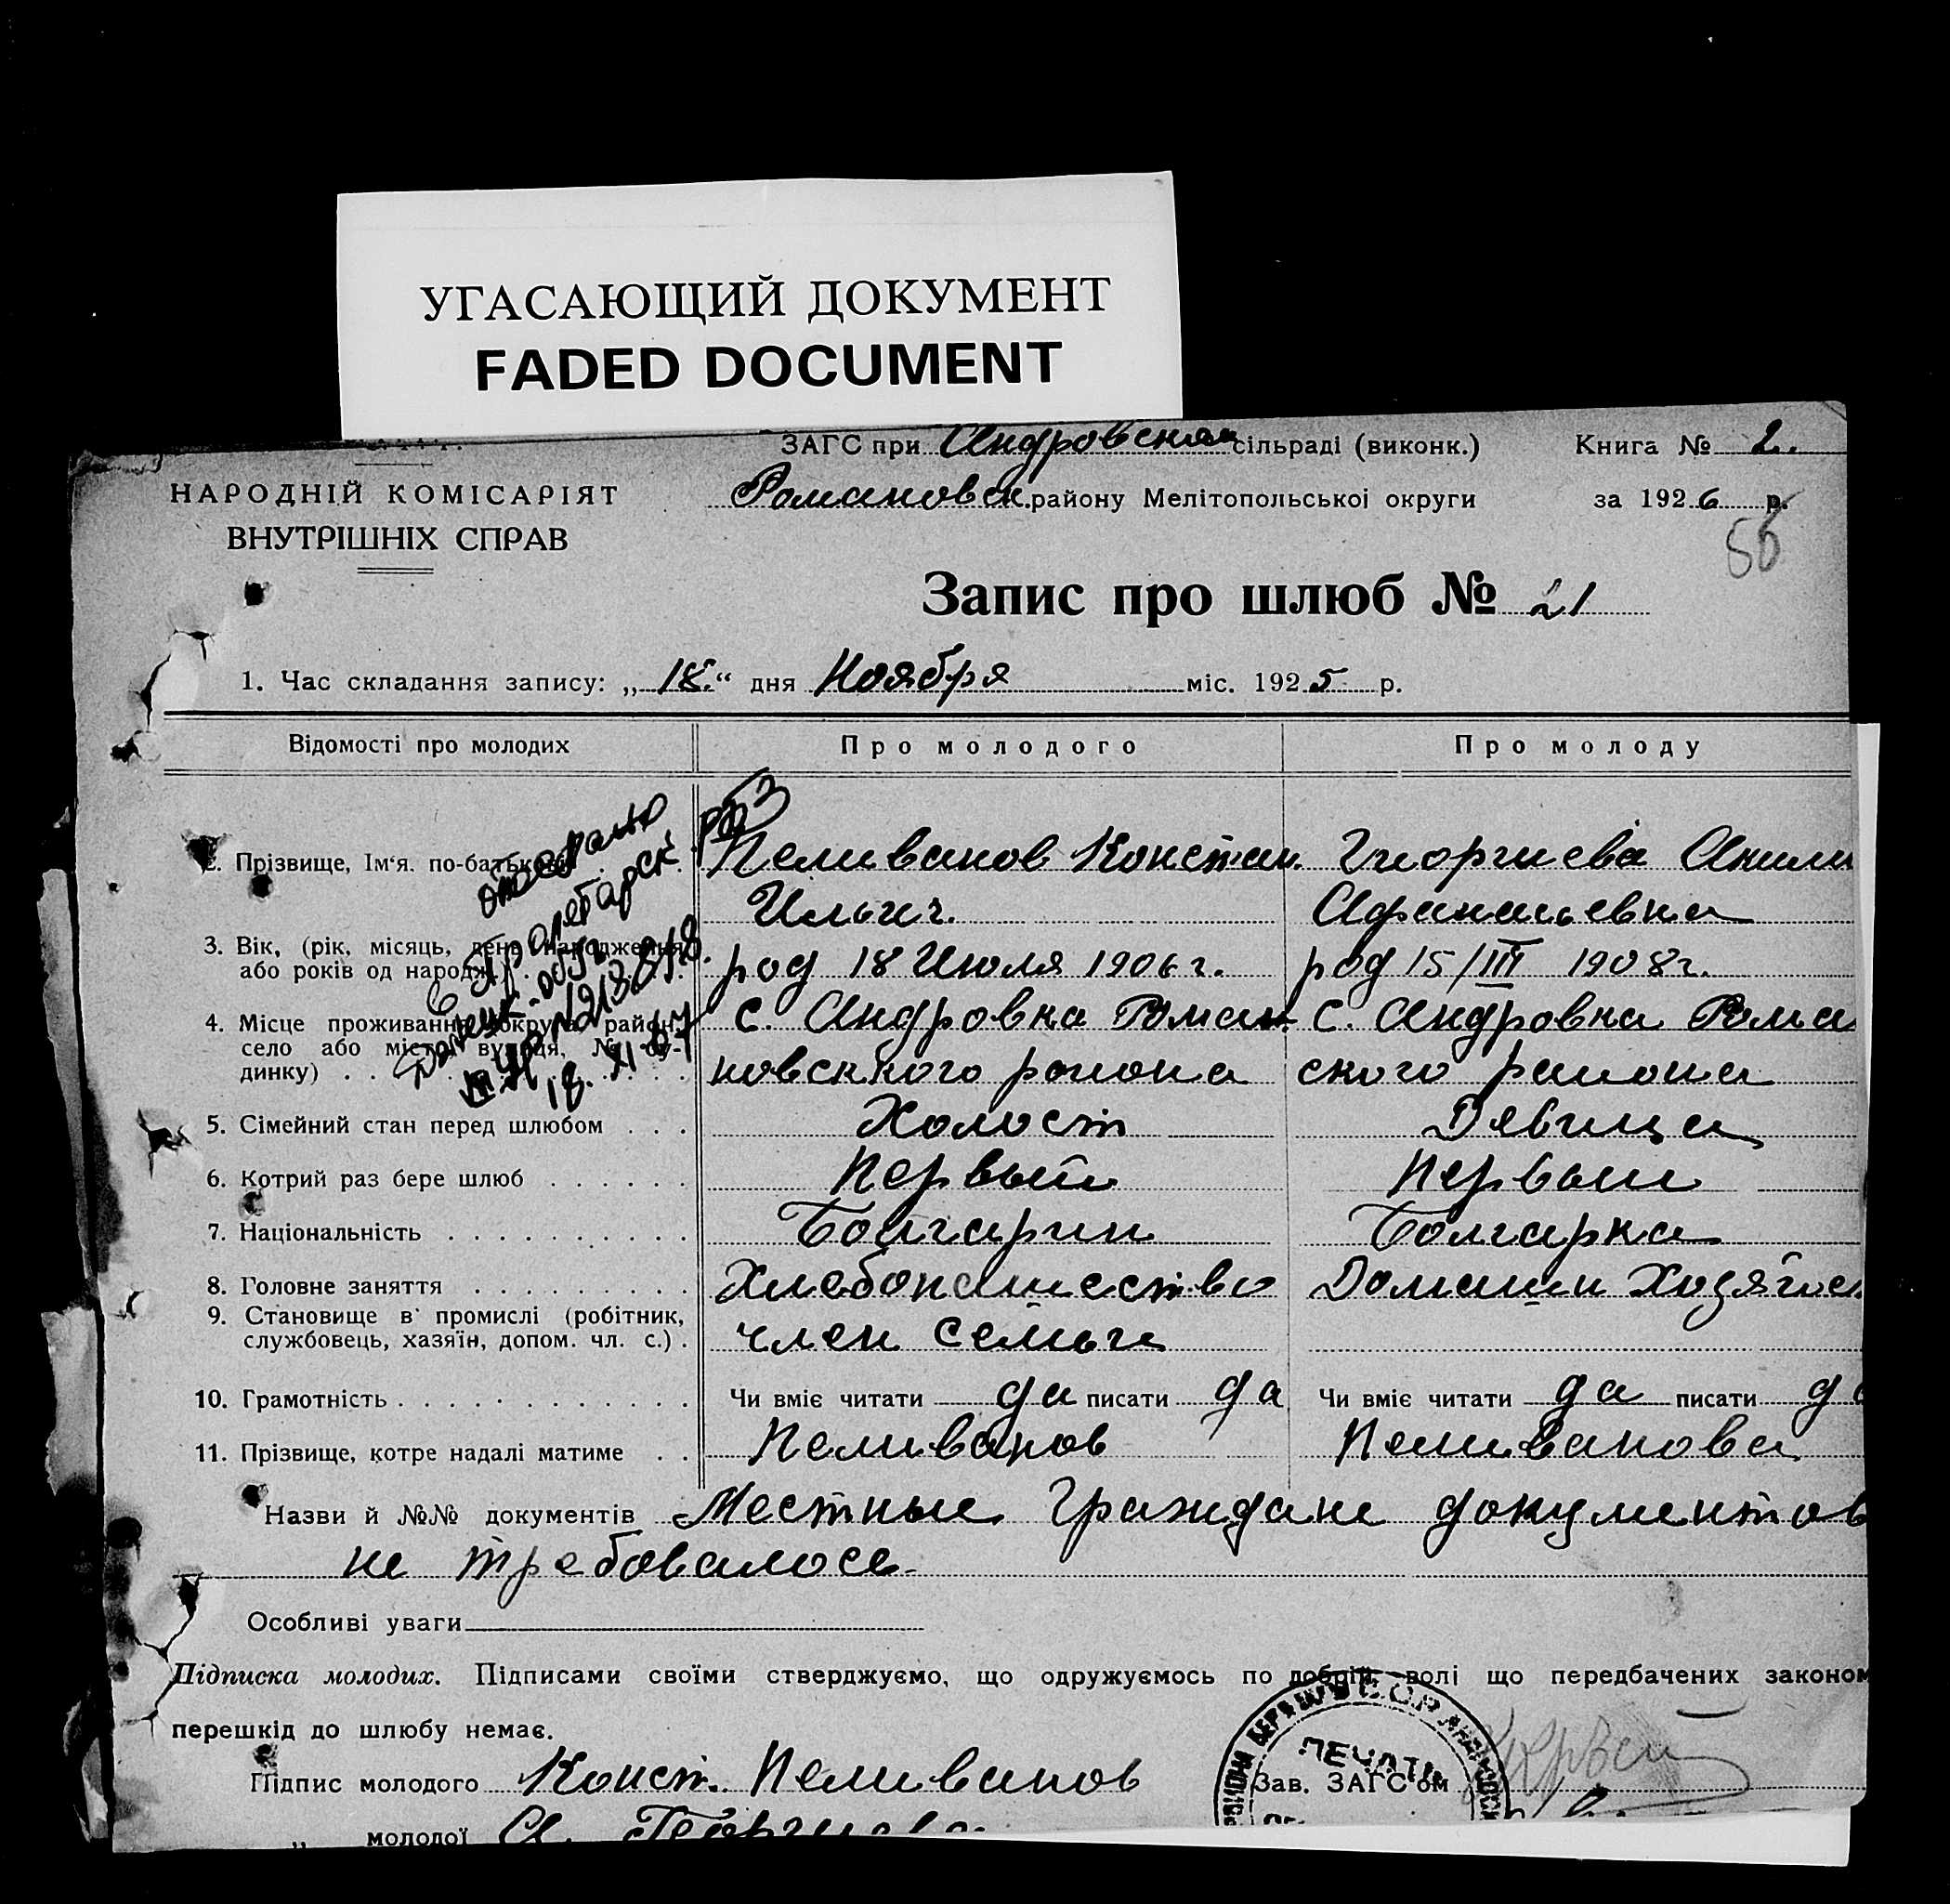 УГАСАЮЩИЙ ДОКУМЕНТ
FADED DOCUMENT
ЗАГС при Андровском сільраді (виконк.) Книга № 2.
НАРОДНІЙ КОМІСАРІЯТ
ВНУТРІШНІХ СПРАВ
Романовск. району Мелітопольської округи за 1926 р.
56
Запис про шлюб № 21
1. Час складання запису: „18.“ дня Ноября міс. 1925 р.
Відомості про молодих Про молодого Про молоду
2. Прізвище, Ім‘я. по-батькові Пеливанов Констан. Гиоргиева
Ильич. Афанасьевна
3. Вік, (рік, місяць, день народження або років од народж.) род 18 Июля 1906 г. род 15/III 1908 г.
4. Місце проживання (округа, район, с. Андровка Роман с. Андровка Рома
село або місто, вулиця, № бу-
динку) новсккого района ского района
5. Сімейний стан перед шлюбом . . . Холост Девица
6. Котрий раз бере шлюб . . . . . . Первый Первый
7. Національність . . . . . . . . . . Болгарин Болгарка
8. Головне заняття . . . . . . . . . Хлебопашество Домашн Хозяйст
9. Становище в промислі (робітник,
службовець, хазяїн, допом. чл. с.) . член семьи
10. Грамотність . . . . . . . . . . . . Чи вміє читати да писати да Чи вміє читати да писати да
11. Прізвище, котре надалі матиме . . Пеливанов Пеливанова
отобрано
в Пролетарск. РБЗ
Донецк. обл.
18. XI-67
Назви й №№ документів Местные Граждане документов
не требовалось.
Особливі уваги
Підписка молодих. Підписами своїми стверджуємо, що одружуємось по добрій волі що передбачених законом
перешкід до шлюбу немає.
Підпис молодого Конст. Пеливанов
ПЕЧАТЬ
Зав. ЗАГС‘ом
„ молодої А. Георгиева